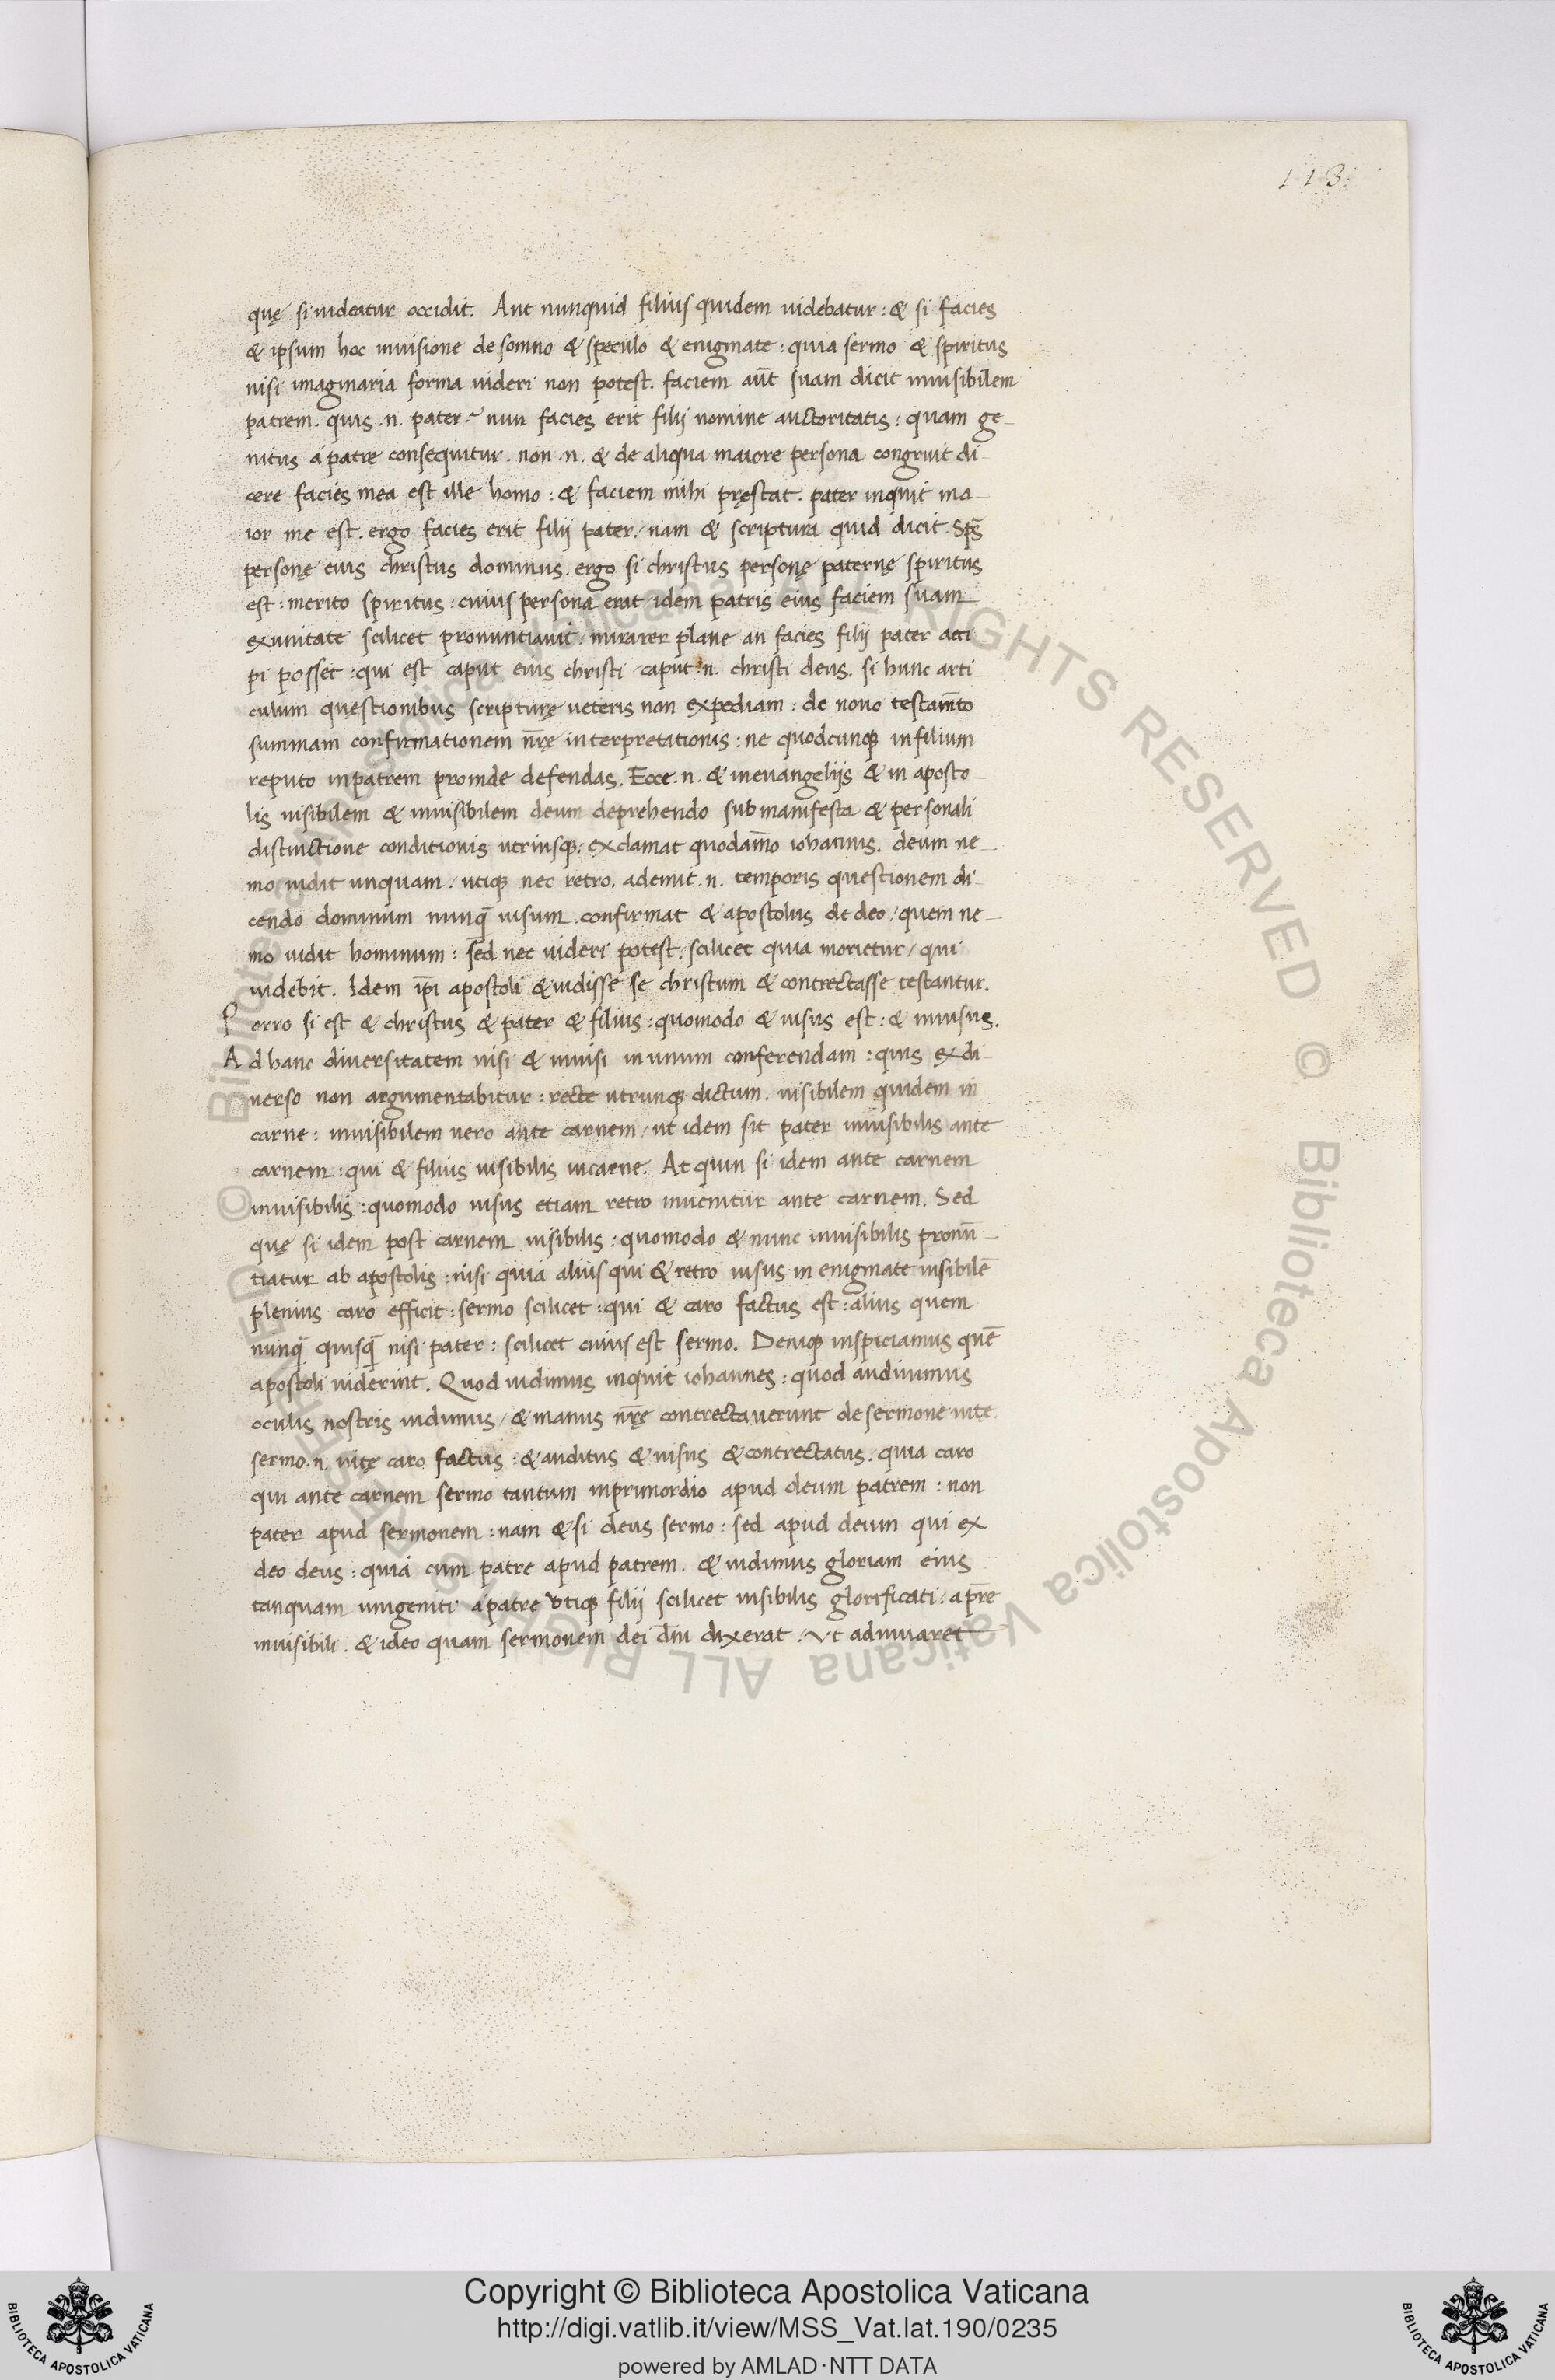 113.
quę si uideatur occidit. Aut nunquid filius quidem uidebatur: & si facies
& ipsum hoc inuisione de somno & speculo & enigmate: quia sermo & spiritus
nisi imaginaria forma uideri non potest. faciem aūt suam dicit inuisibilem
patrem. quis .n. pater. nun facies erit filij nomine auctoritatis: quam ge-
nitus á patre consequitur. non .n. & de aliqua maiore persona congruit di-
cere facies mea est ille homo: & faciem mihi pręstat. pater inquit ma-
ior me est. ergo facies erit filij pater. nam & scriptura quid dicit. Sp̄s
personę eius christus dominus. ergo si christus personę paternę spiritus
est: merito spiritus: cuius persona erat idem patris eius faciem suam
exunitate scilicet pronuntiauit. mirarer plane an facies filij pater acci
pi posset: qui est caput eius christi caput .n. christi deus. si hunc arti
culum questionibus scripturę ueteris non expediam: de nouo testam̄to
summam confirmationem nr̄ę interpretationis: ne quodcunqꝫ infilium
reputo inpatrem proinde defendas. Ecce .n. & ineuangelijs & in aposto-
lis uisibilem & inuisibilem deum deprehendo submanifesta & personali
distinctione conditionis utriusqꝫ: exclamat quodam̄o iohannis. deum ne-
mo uidit unquam. utiqꝫ nec retro. ademit .n. temporis questionem di-
cendo dominum nunq̄ uisum. confirmat & apostolus de deo / quem ne-
mo uidit hominum: sed nec uideri potest. scilicet quia morietur / qui
uidebit. Idem ip̄i apostoli & uidisse se christum & contrectasse testantur.
Porro si est & christus & pater & filius: quomodo & uisus est: & inuisus.
Ad hanc diuersitatem uisi & inuisi inunum conferendam: quis exdi-
uerso non argumentabitur: recte utrunqꝫ dictum. uisibilem quidem in
carne: inuisibilem uero ante carnem / ut idem sit pater inuisibilis ante
carnem: qui & filius uisibilis incarne. At quin si idem ante carnem
inuisibilis: quomodo uisus etiam retro inuenitur ante carnem. Sed
quę si idem post carnem uisibilis: quomodo & nunc inuisibilis pronū-
tiatur ab apostolis: nisi quia alius qui & retro uisus in enigmate uisibilē
plenius caro efficit: sermo scilicet: qui & caro factus est: alius quem
nunq̄ quisq̄ nisi pater: scilicet cuius est sermo. Deniqꝫ inspiciamus quē
apostoli uiderint. Quod uidimus inquit iohannes: quod audiuimus
oculis nostris uidimus / & manus nr̄ę contrectauerunt de sermone uitę
sermo .n. uitę caro factus: & auditus & uisus & contrectatus. quia caro
qui ante carnem sermo tantum inprimordio apud deum patrem: non
pater apud sermonem: nam & si deus sermo: sed apud deum qui ex
deo deus: quia cum patre apud patrem. & uidimus gloriam eius
tanquam unigeniti á patre utiqꝫ filij scilicet uisibilis glorificati. apr̄e
inuisibili. & ideo quam sermonem dei dm̄ dixerat. Ut adiuuaret
Copyright © Biblioteca Apostolica Vaticana
http://digi.vatlib.it/view/MSS_Vat.lat.190/0235
powered by AMLAD·NTT DATA